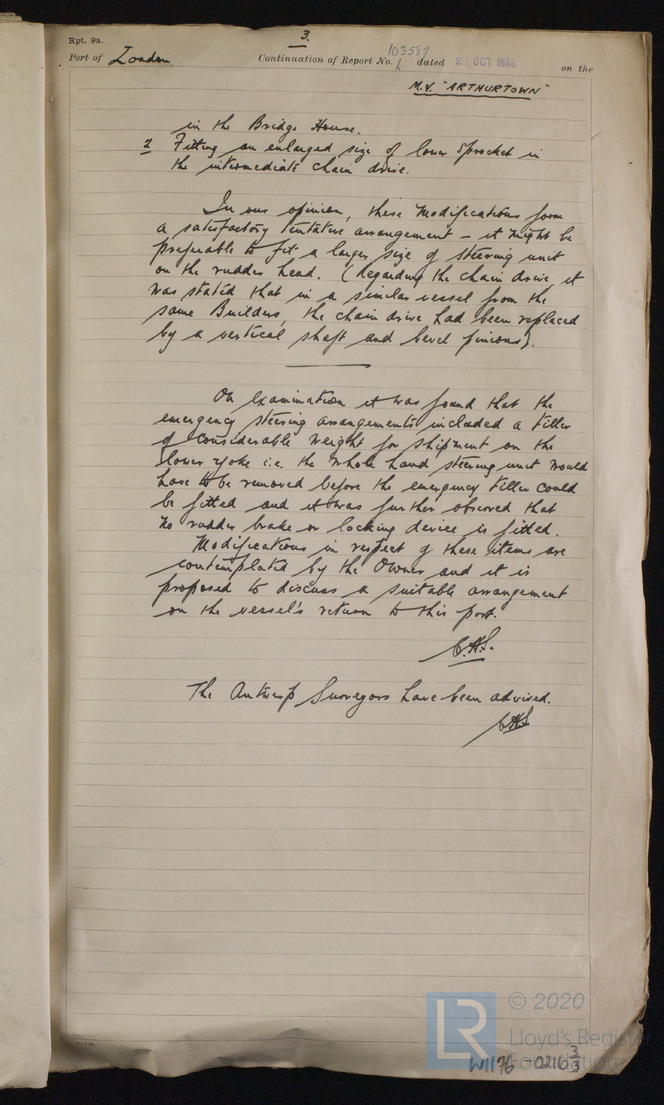 3.
Rpt. 9a.
103587
Port of London Continuation of Report No. dated 21 OCT 193 on the
M.V. "ARTHURTOWN"
in the Bridge House.
2 Fitting an enlarged size of lower sprocket in
the intermediate chain drive.
In our opinion, these modifications form
a satisfactory tentative arrangement - it might be
preferable to fit a larger size of steering unit
on the rudder head. (Regarding the chain drive, it
was stated that in a similar vessel from the
same Builders, the chain drive had been replaced
by a vertical shaft and bevel pinions).
On examination it was found that the
emergency steering arrangements included a tiller
of considerable weight for shipment on the
lower yoke i.e. the whole hand steering unit would
have to be removed before the emergency tiller could
be fitted and it was further observed that
no rudder brake or locking device is fitted.
Modifications in respect of these items are
contemplated by the Owner and it is
proposed to discuss a suitable arrangement
on the vessel's return to this port.
C.H.S.
The Antwerp Surveyors have been advised.
CHS
LR © 2020
Lloyd's Register
Foundation
W1176-0216 3/3